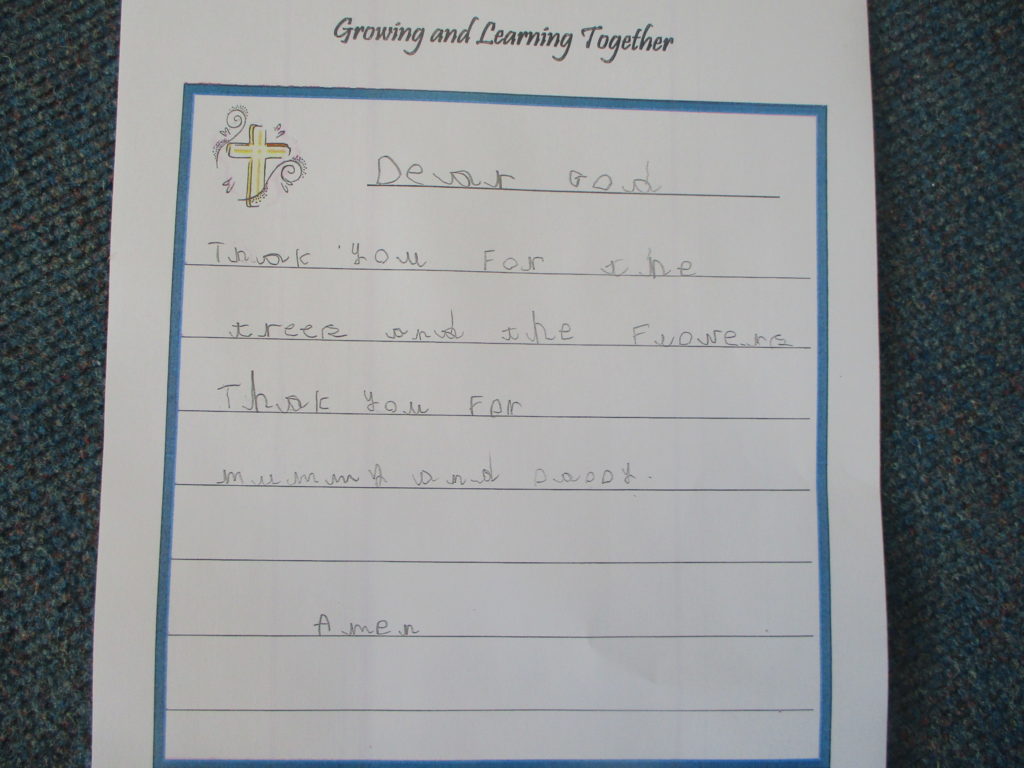 Growing and Learning Together
Dear God
Thak you For the
trees and the Fuowers
Thak you For
mummy and DaDDy.
Amen